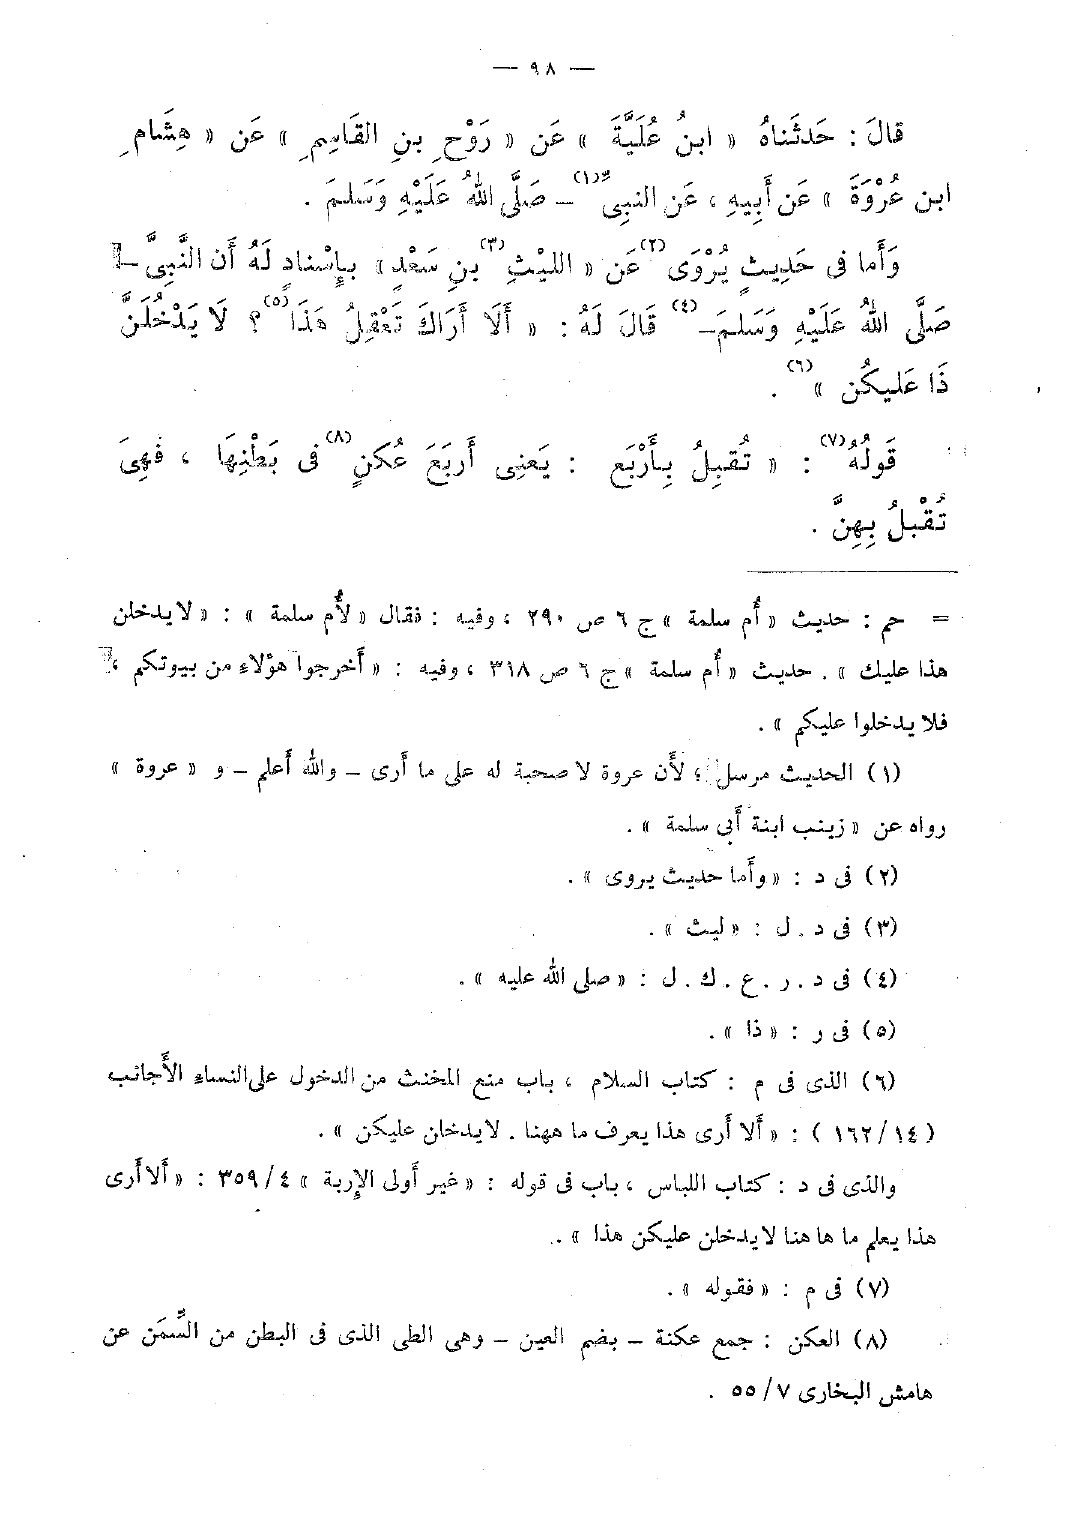 — ٩٨ —
قالَ : حَدثَناهُ « ابنُ عُلَيَّةَ » عَن « رَوْحِ بنِ القَاسِمِ » عَن « هِشَامِ
ابن عُرْوَةَ » عَن أَبِيهِ ، عَن النبِىِّ(١) – صَلَّى اللهُ عَلَيْهِ وَسَلمَ .
وَأَما فى حَدِيثٍ يُرْوَى(٢) عَن « الليْثِ(٣) بنِ سَعْدٍ» بإِسْنادٍ لَهُ أَن النَّبِىَّ –
صَلَّى اللهُ عَلَيْهِ وَسَلمَ–(٤) قَالَ لَهُ : « أَلَا أَرَاكَ تَعْقِلُ هَذَا(٥) ؟ لَا يَدْخُلَنَّ
ذَا عَليكُن »(٦) .
قَولُهُ(٧) : « تُقبِلُ بِأَرْبَع : يَعنِى أَربَعَ عُكَنٍ(٨) فى بَطْنِهَا ، فَهِىَ
تُقْبلُ بِهِنَّ .
= حم : حديث « أُم سلمة » ج ٦ ص ٢٩٠ ، وفيه : فقال « لأُم سلمة » : « لا يدخلن
هذا عليك » . حديث « أُم سلمة » ج ٦ ص ٣١٨ ، وفيه : « أَخرجوا هؤلاءِ من بيوتكم ،
فلا يدخلوا عليكم » .
(١) الحديث مرسل ؛ لأَن عروة لا صحبة له على ما أَرى – والله أَعلم – و « عروة »
رواه عن « زينب ابنة أَبى سلمة » .
(٢) فى د : « وأَما حديث يروى » .
(٣) فى د . ل : « ليث » .
(٤) فى د . ر . ع . ك . ل : « صلى الله عليه » .
(٥) فى ر : « ذا » .
(٦) الذى فى م : كتاب السلام ، باب منع المخنث من الدخول على النساء الأَجانب
( ١٤/ ١٦٢ ) : « أَلا أَرى هذا يعرف ما ههنا . لا يدخلن عليكن » .
والذى فى د : كتاب اللباس ، باب فى قوله : « غير أُولى الإِربة » ٤/ ٣٥٩ : « أَلا أَرى
هذا يعلم ما ها هنا لا يدخلن عليكن هذا » .
(٧) فى م : « فقوله » .
(٨) العكن : جمع عكنة – بضم العين – وهى الطى الذى فى البطن من السِّمَن عن
هامش البخارى ٧/ ٥٥ .